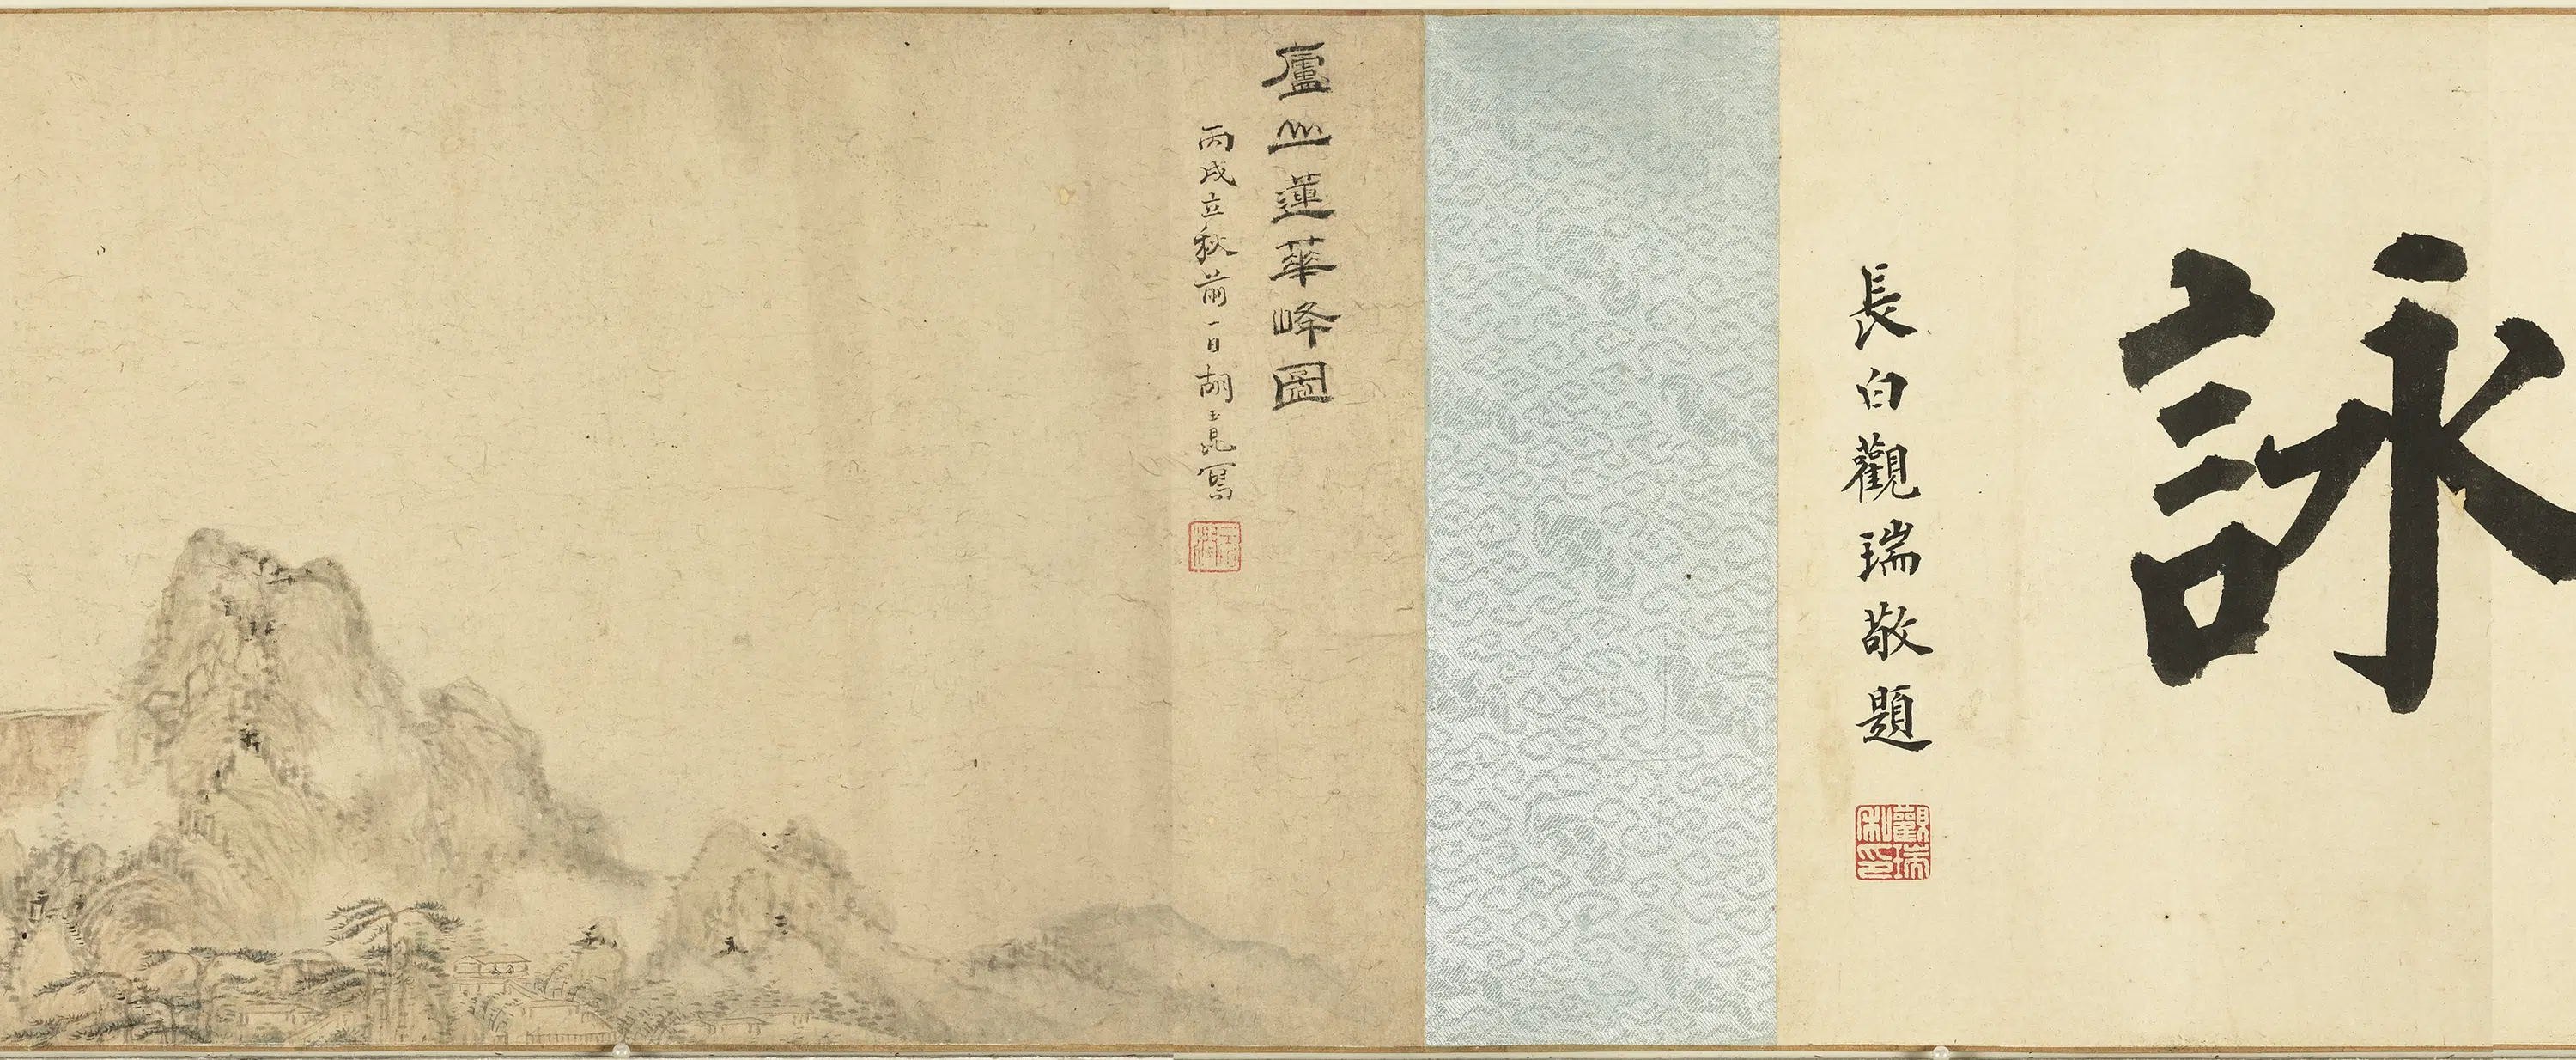 詠
長白觀瑞敬題
觀瑞私印
廬山蓮華峰圖
丙戌立秋前一日胡玉昆寫
元潤